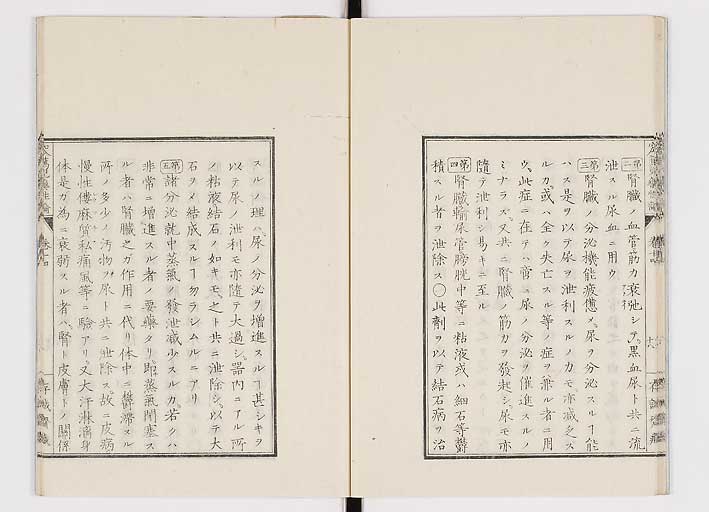 第二腎臓ノ血管筋力衰弛シテ。黒血尿ト共ニ流
泄スル尿血ニ用ウ
第三腎臓ノ分泌機能疲憊メ。尿ヲ分泌スルヿ能
ハス是ヲ以テ尿ヲ泄利スルノ力モ亦减乏ス
ルカ。或ハ全ク失亡スル等ノ症ヲ兼ル者ニ用
ウ。此症ニ在テハ啻ニ尿ノ分泌ヲ催進スルノ
ミナラス。又共ニ腎臓ノ筋力ヲ發起シ。尿モ亦
隨テ泄利シ易キニ至ル
第四腎臓輸尿管膀胱中等ニ粘液或ハ細石等欝
積スル者ヲ泄除ス〇此劑ヲ以テ結石病ヲ治
スルノ理ハ。尿ノ分泌ヲ増進スルヿ甚シキヲ
以テ尿ノ泄利モ亦隨テ大過シ。器内ニアル所
ノ粘液結石ノ如キモ。之ト共ニ泄除シ。以テ大
石ヲメ結成スルヿ勿ラシムルニアリ
第五諸分泌就中蒸氣ノ發泄减少スルカ。若クハ
非常ニ増進スル者ノ要藥タリ即蒸氣閉塞ス
ル者ハ腎臓之カ作用ニ代リ体中ニ欝滞スル
所ノ多少ノ汚物ヲ尿ト共ニ泄除ス故ニ皮病
慢性僂麻質私痛風等ニ驗アリ。又大汗淋漓身
体是カ為ニ衰弱スル者ハ。腎ト皮膚トノ關係